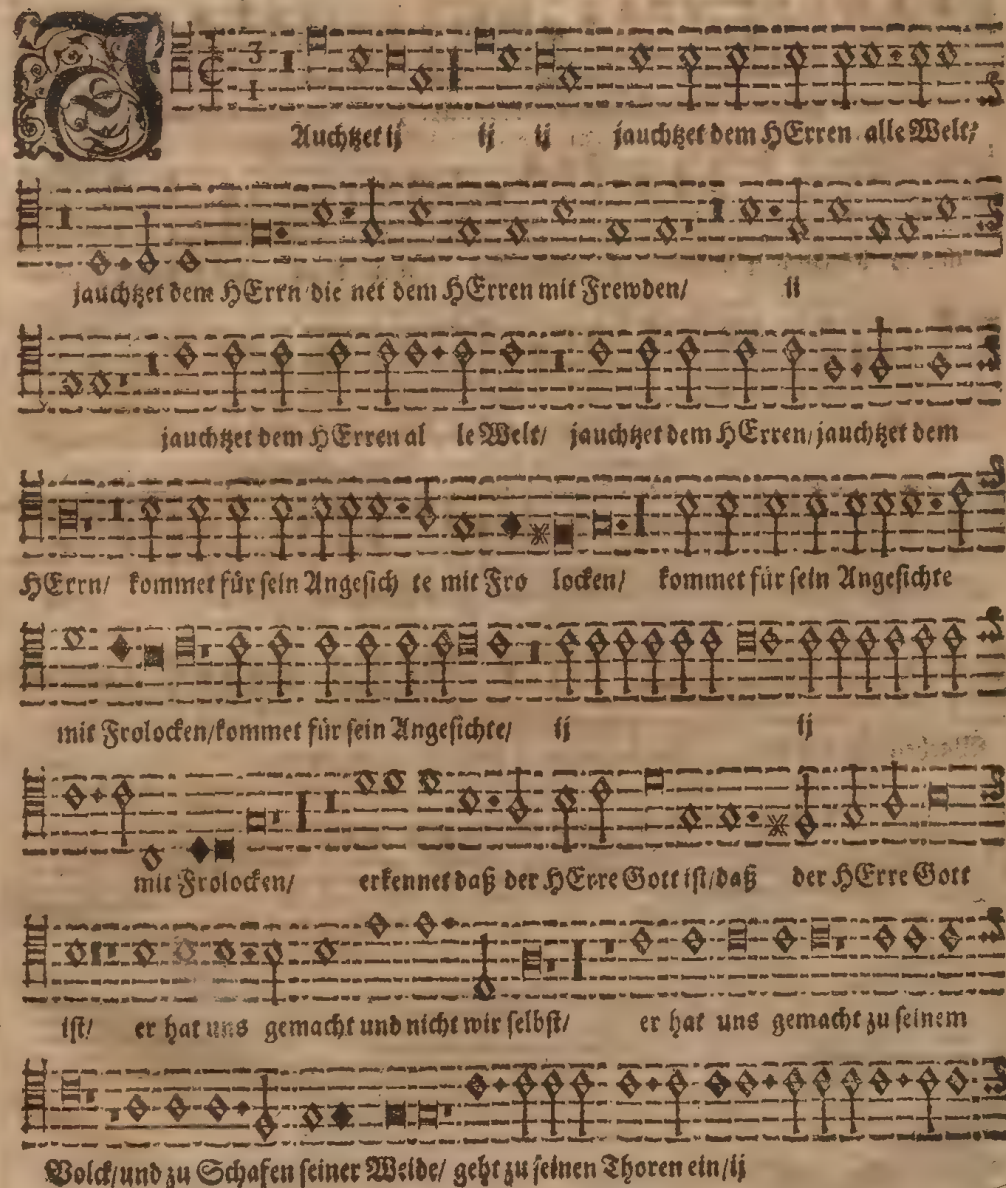 JAuchtzet ij ij ij jauchtzet dem HErren alle Welt/
jauchtzet dem HErrn die net dem HErren mit Frewden/ ij
jauchtzet dem HErren al le Welt/ jauchtzet dem HErren/ jauchtzet dem
HErrn/ kommet für sein Angesich te mit Fro locken/ kommet für sein Angesichte
mit Frolocken/ kommet für sein Angesichte/ ij ij
mit Frolocken/ erkennet daß der HErre Gott ist/ daß der HErre Gott
ist/ er hat uns gemacht und nicht wir selbst/ er hat uns gemacht zu seinem
Volck/ und zu Schafen seiner Weide/ geht zu seinen Thoren ein/ ij